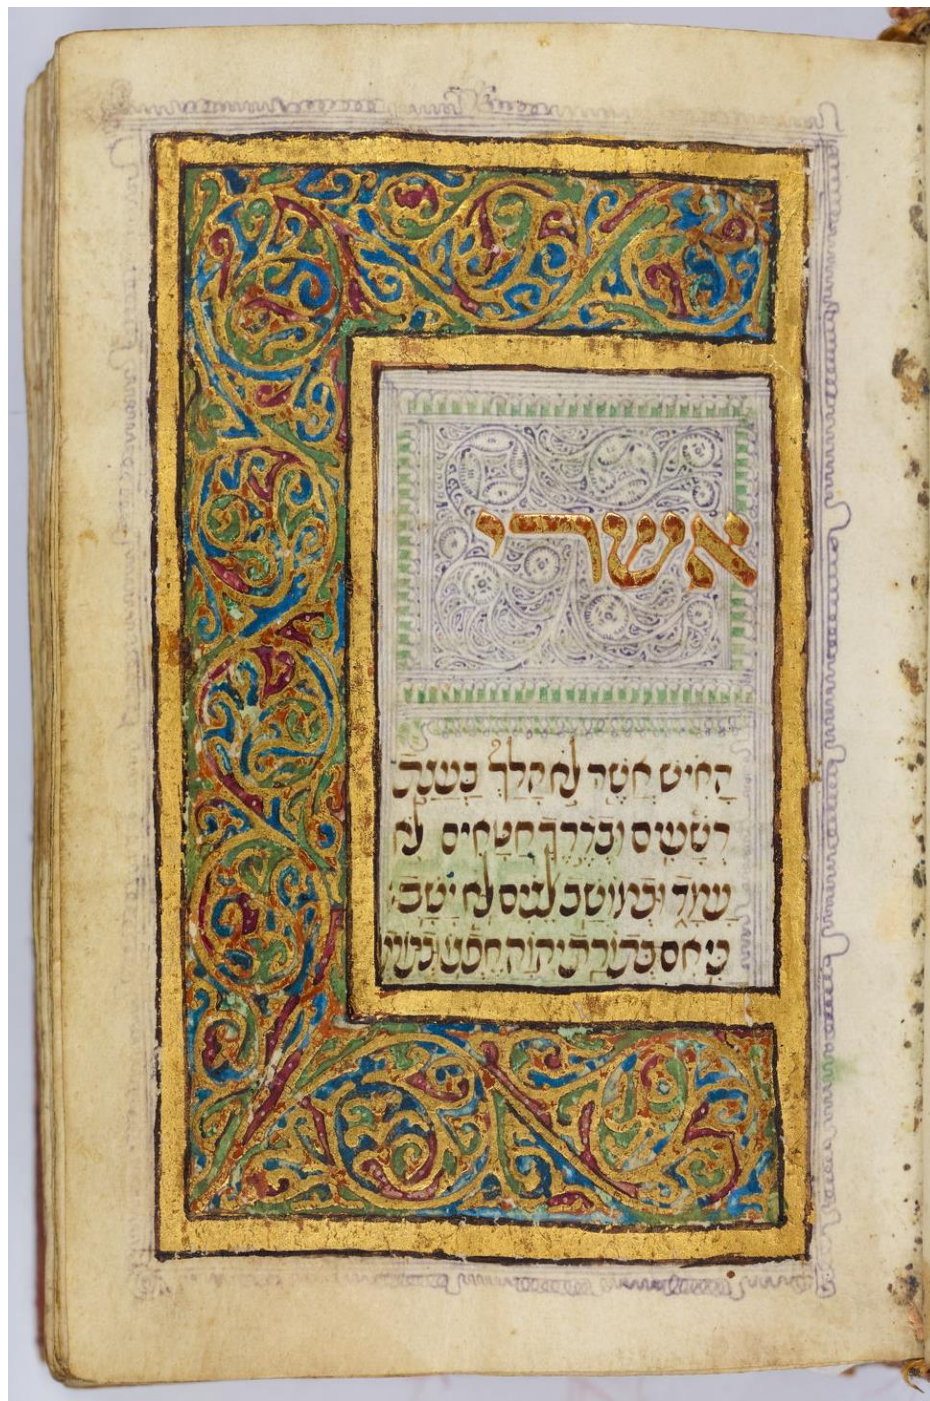 אשרי
הָאִישׁ אֲשֶׁר לֹא הָלַךְ בַּעֲצַת
רְשָׁעִים וּבְדֶרֶךְ חַטָּאִים לֹא
עָמָד וּבְמוֹשַׁב לֵצִים לֹא יָשָׁב׃
כִּי אִם בְּתוֹרַת יְהוָה חֶפְצוֹ